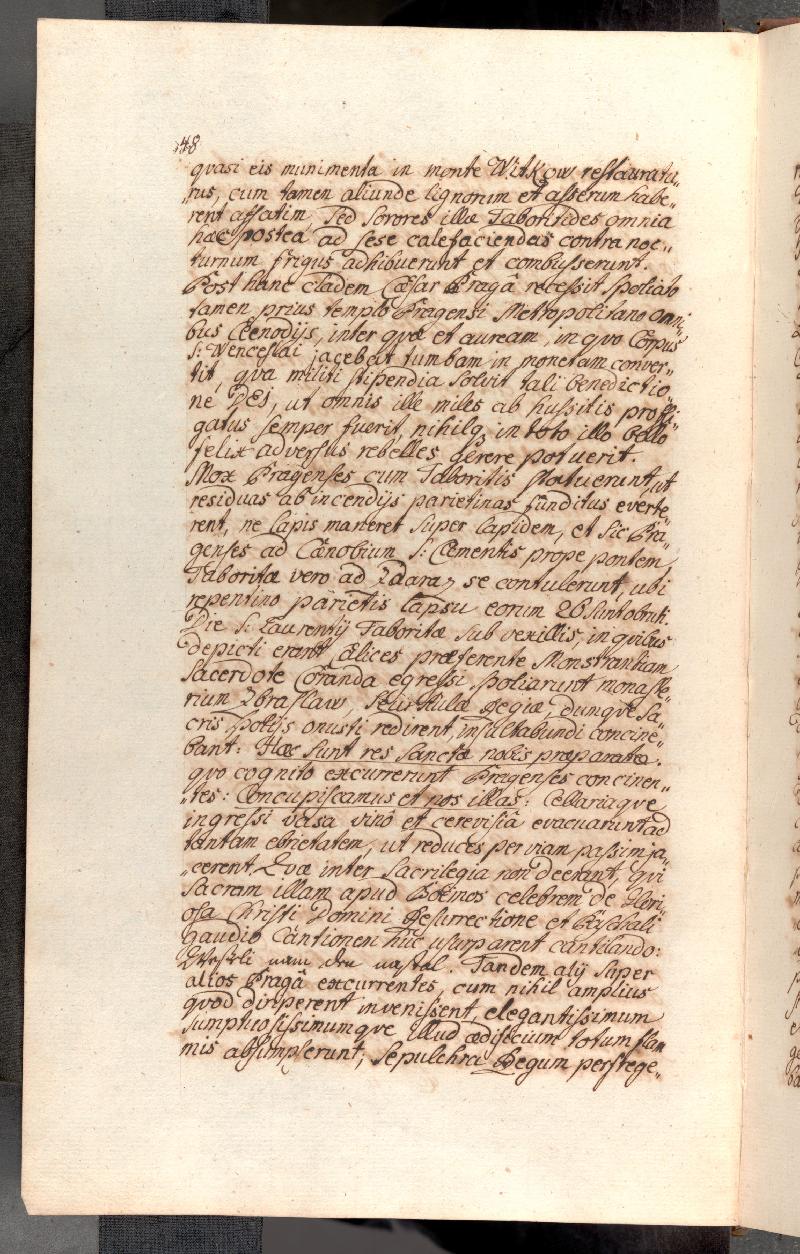 48
quasi eis munimenta in monte Witkow restauratu„
„rus, cum tamen aliunde lignorum et asserum habe„
rent affatim, Sed Sorores illæ Taboritides omnia
hæc postea ad sese calefaciendas contra noc„
turnum frigus adhibuerunt et combusserunt.
Post hanc cladem Cæsar Pragâ recessit spoliato
tamen prius templo Pragensi Metropolitano omni„
bus Clenodijs, inter quæ et auream, in quo Corpus
S: Wenceslai jacebat tumbam in monetam conver„
tit, qua militi stipendia solvit tali benedictio„
ne DEI, ut omnis ille miles ab hussitis profli„
gatus semper fuerit, nihilq3 in toto illo bello
felix adversus rebelles gerere potuerit.
Mox Pragenses cum Taboritis statuerunt, ut
residuas ab incendijs parietinas funditus everte„
rent, ne lapis maneret super lapidem, et sic Pra„
genses ad Cænobium S: Clementis prope pontem,
Taboritæ vero ad Zdaraz se contulerunt, ubi
repentino parietis lapsu eorum 26 sunt obruti.
Die S: Laurentij Taboritæ sub vexillis, in quibus
depicti erant Calices præferente Monstrantiam
Sacerdote Coranda egressi spoliarunt monaste„
rium Zbraslaw, seu Aulæ Regiæ, dumque Sa„
cris spolijs onusti redirent, insultabundi concine„
bant: Hæc sunt res sanctæ nobis præparatæ.
quo cognito excurrerunt Pragenses concinen„
„tes: Concupiscamus et nos illas: Cellariaque
ingressi vasa vinô et cerevisiâ evacuarunt ad
tantam ebrietatem, ut reduces per viam passim ja„
„cerent, Quæ inter Sacrilegia non deerant, qui
Sacram illam apud Boëmos celebrem de Glori„
osa Christi Domini Resurrectione et Paschali
gaudio Cantionem huc usurparent cantilando:
Wesseli nam den nastal. Tandem alij super
alios Pragâ excurrentes, cum nihil amplius
quod diriperent invenissent, elegantissimum
sumptuosissimumque illud ædificium totum flam
mis absumpserunt, Sepulchra Regum perfrege„